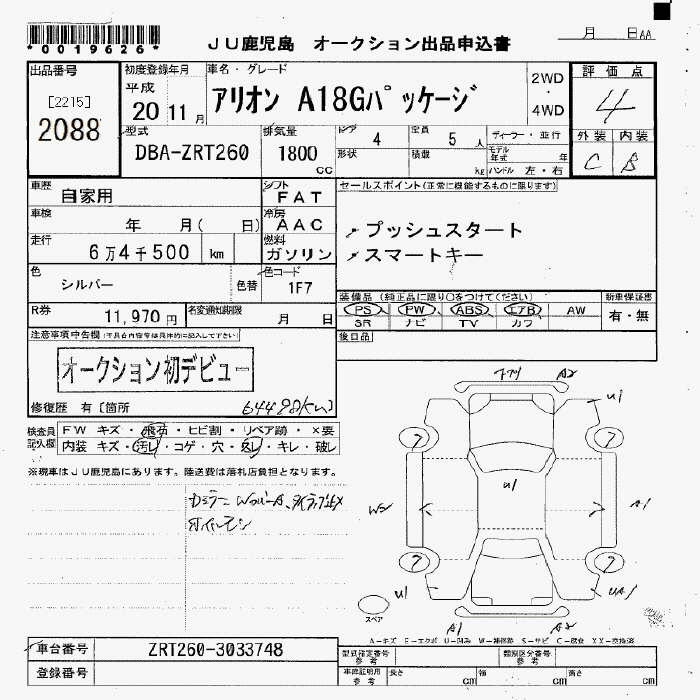 *0019626*
JU鹿児島 オークション出品申込書
月 日 AA
出品番号
[2215]
2088
初度登録年月
平成
20 11月
車名・グレード
アリオン A18Gパッケージ
2WD
・
4WD
評価点
4
外装 内装
C B
型式
DBA-ZRT260
排気量
1800
cc
ドア 4
定員 5人
形状
積載 kg
ディーラー・並行
モデル年式 年
ハンドル 左・右
車歴
自家用
シフト
FAT
車検
年 月( 日)
冷房
AAC
走行
6万4千500 km
燃料
ガソリン
色
シルバー
色替
色コード
1F7
R券
11,970円
名変通知期限
月 日
セールスポイント(正常に機能するものに限ります)
プッシュスタート
スマートキー
装備品(純正品に限り○をつけてください)
PS PW ABS エアB AW
SR ナビ TV カワ
新車保証書
有・無
後日品
注意事項申告欄
オークション初デビュー
修復歴 有[箇所
64498(km)
検査員記入欄
FW キズ・飛石・ヒビ割・リペア跡・×要
内装 キズ・汚レ・コゲ・穴・スレ・キレ・破レ
※現車はJU鹿児島にあります。陸送費は落札店負担となります。
A2
U1
U1
A1
U1
A1
A2
スペア
A-キズ E-エクボ U-凹み W-補修跡 S-サビ C-腐食 XX-交換済
車台番号
ZRT260-3033748
登録番号
型式指定番号
参考
類別区分番号
参考
車庫証明用
参考
長さ cm
幅 cm
高さ cm